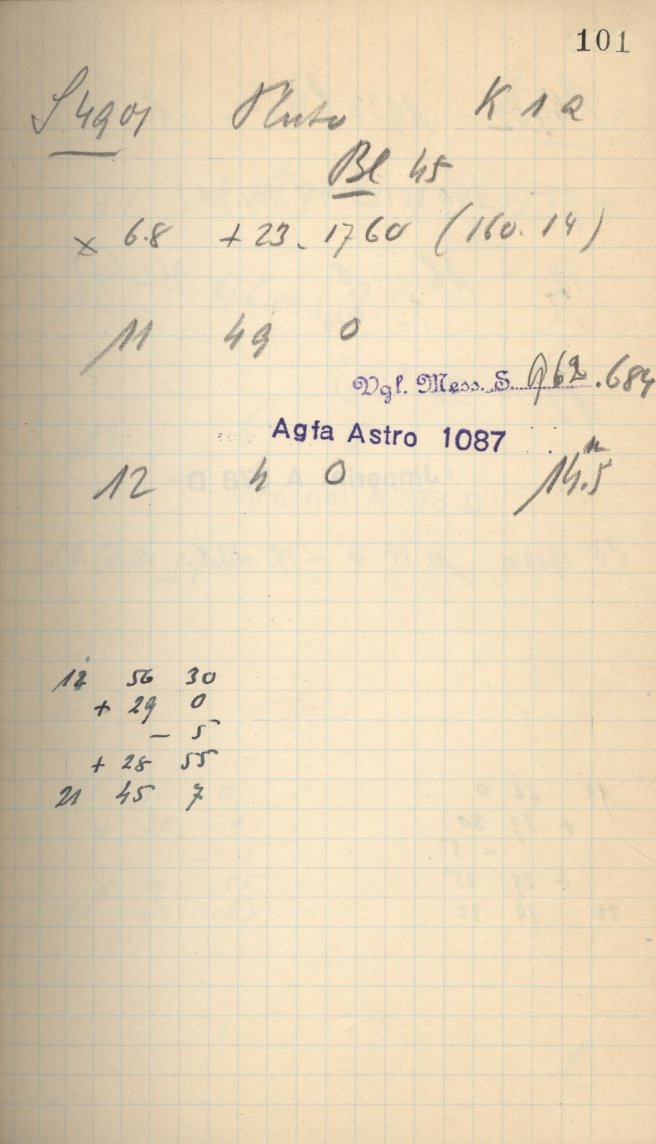 101
S 4901 Pluto K 1 a
Bl 45
× 6.8 +23. 1760 (160. 14)
11 49 0
Vgl. Mess. S. 62.684
Agfa Astro 1087
12 4 0 14.5
12 56 30
+ 29 0
- 5
+ 28 55
21 45 7